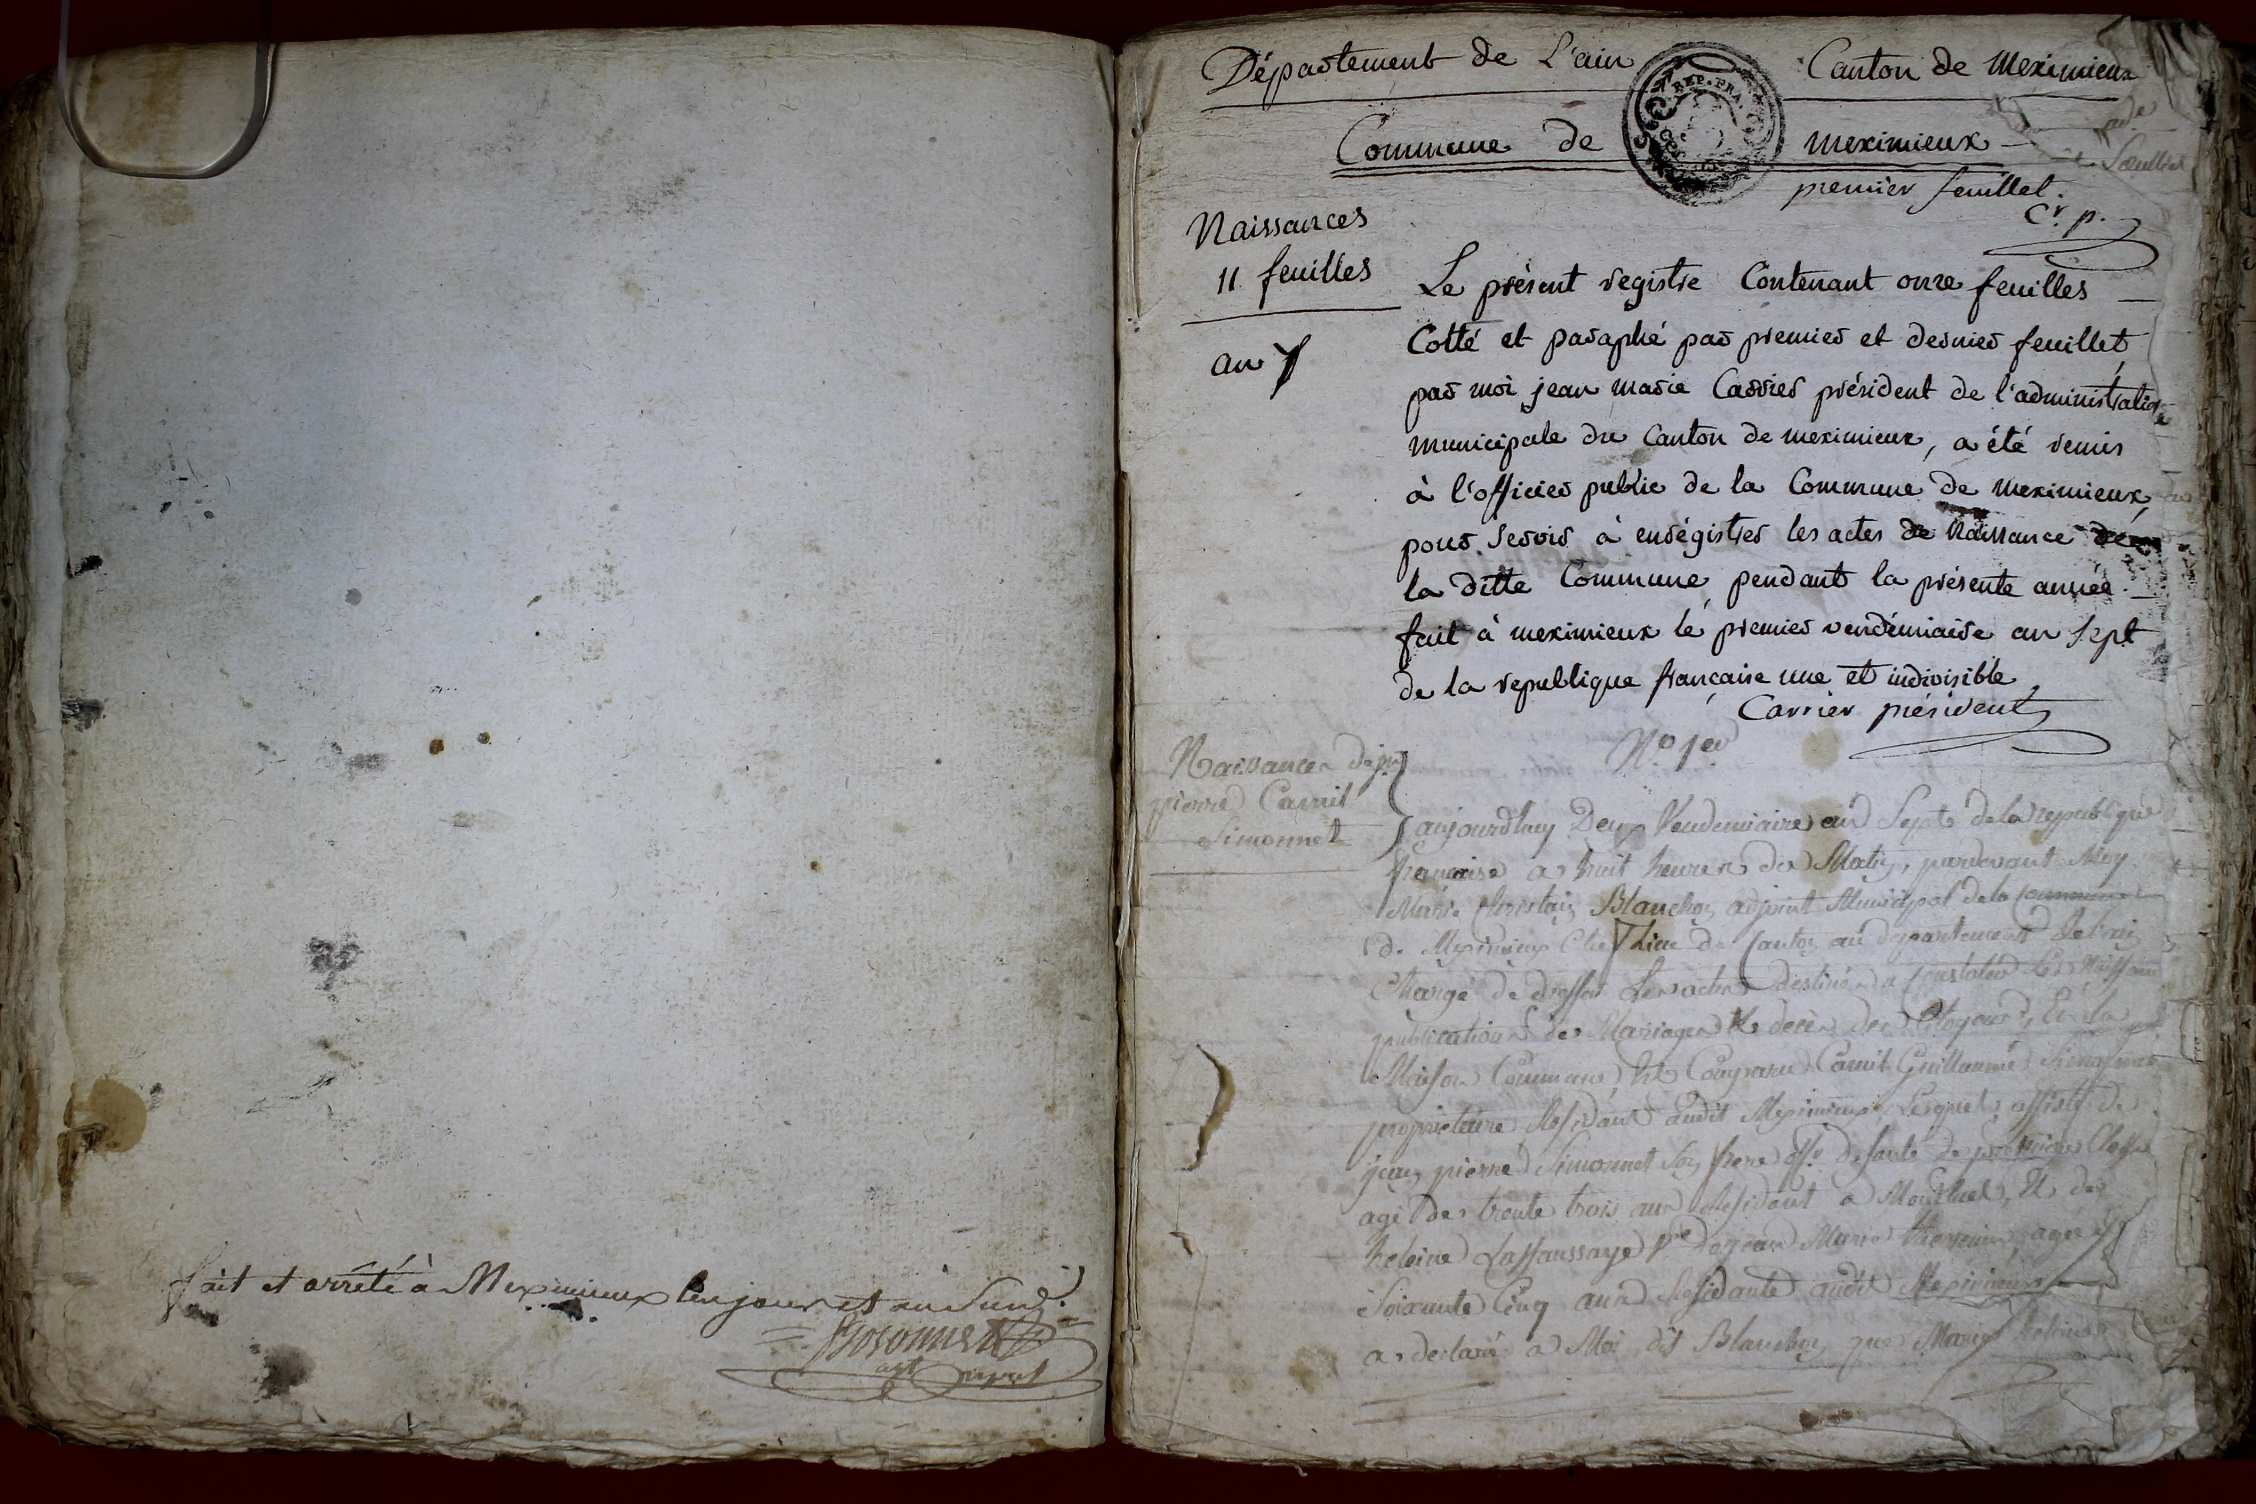 fait et arrêté à Meximieux les jour et an susd.
Département de L'ain
Canton de Meximieux
Commune de meximieux
premier feuillet.
C.r p.
Naissances
11 feuilles
an 7
REP. FRA.
Le présent registre Contenant onze feuilles
Cotté et paraphé par premier et dernier feuillet
par moi jean marie Carrier président de l'administration
municipale du Canton de meximieux, a été remis
à l'officier public de la Commune de meximieux,
pour servir à enrégistrer les actes de Naissance de
la ditte Commune pendant la présente année.
fait à meximieux le premier vendémiaire an sept
de la republique française une et indivisible
Carrier président
N.o 1er
Naissance de jn
pierre Camil
Simonnet
aujourdhuy Deux Vendemiaire an Sept de la republique
francaise a huit heures du Matin, pardevant Moy
Marie Blanchon adjoint Municipal de la Commune
de Meximieux Chef Lieu de Canton au departement de l'ain
Chargé de dresser Les actes destinés a Constater les Naissances
publications de Mariages & decès des Citoyens, En la
Maison Commune, Est Comparu Camil Guillaume Simonnet
proprietaire Residant audit Meximieux Lequel assisté de
jean pierre Simonnet Son frere off.r de santé de premiere Classe
agé de trente trois ans Residant a Montluel, Et de
heleine Lassaussaye Ve de jean Marie agée de
Soixante Cinq ans Residante audit Meximieux
a declaré a Moi dit Blanchon que Marie heleine